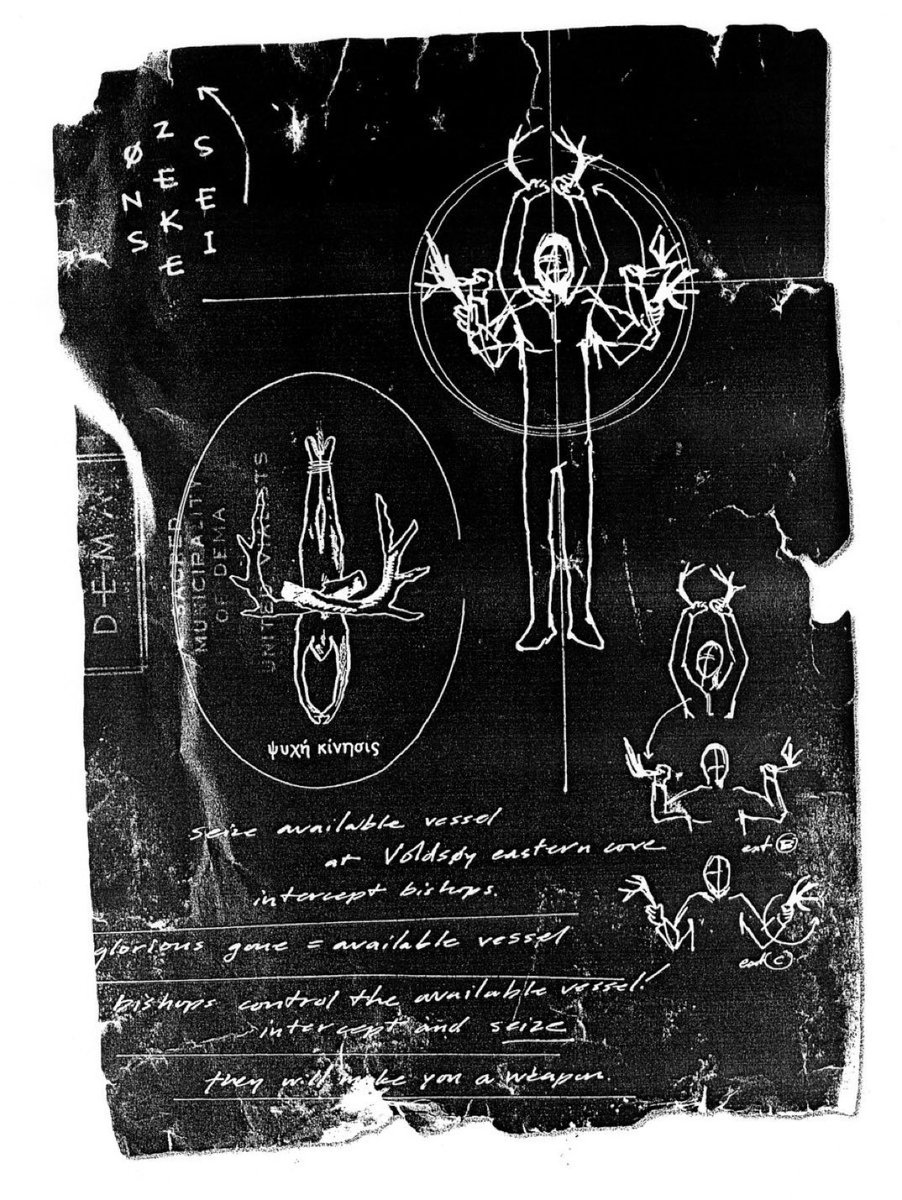 ØNS
ZEKE
SEI
DEMA
SACRED
MUNICIPALITY
OF DEMA
VIALISTS
ψυχή κίνησις
seize available vessel
at Voldsøy eastern cove
intercept bishops.
ext B
ext C
glorious gone = available vessel
bishops control the available vessel!
intercept and seize
they will make you a weapon.